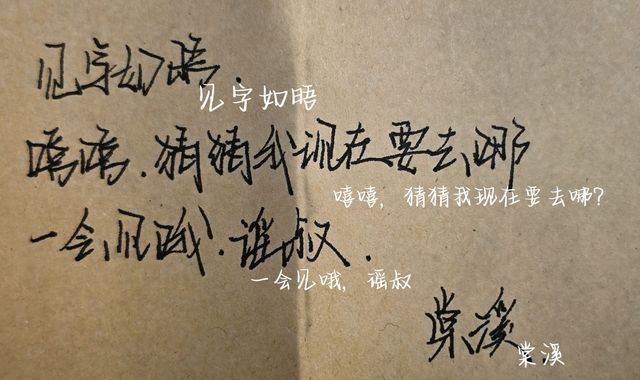 见字如晤.
见字如晤
嘻嘻.猜猜我现在要去哪
嘻嘻,猜猜我现在要去哪?
一会见哦.谣叔.
一会见哦,谣叔
棠溪
棠溪